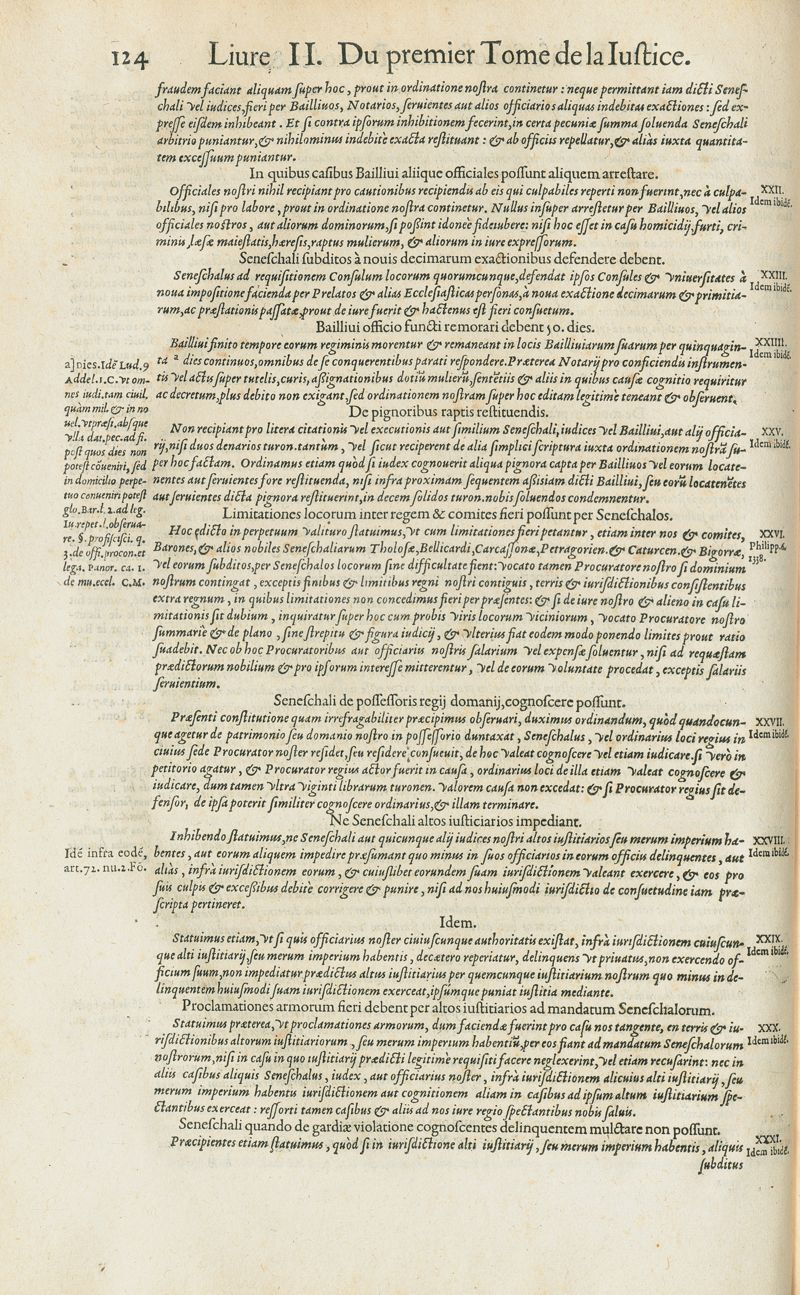 124 Liure II. Du premier Tome de la Iustice.
fraudem faciant aliquam super hoc, prout in ordinatione nostra continetur : neque permittant iam dicti Senes-
chali vel iudices, fieri per Bailliuos, Notarios, seruientes aut alios officiarios aliquas indebitas exactiones : sed ex-
presse eisdem inhibeant. Et si contra ipsorum inhibitionem fecerint, in certa pecuniæ summa soluenda Seneschali
arbitrio puniantur, & nihilominus indebitè exacta restituant : & ab officiis repellatur, & aliàs iuxta quantita-
tem excessuum puniantur.
In quibus casibus Bailliui aliique officiales possunt aliquem arrestare.
Officiales nostri nihil recipiant pro cautionibus recipiendis ab eis qui culpabiles reperti non fuerint, nec à culpa-
XXII.
bilibus, nisi pro labore, prout in ordinatione nostra continetur. Nullus insuper arrestetur per Bailliuos, vel alios
Idem ibidẽ.
officiales nostros, aut aliorum dominorum, si possint idoneè fideiubere: nisi hoc esset in casu homicidij, furti, cri-
minis læsæ maiestatis, hæresis, raptus mulierum, & aliorum in iure expressorum.
Seneschali subditos à nouis decimarum exactionibus defendere debent.
Seneschalus ad requisitionem Consulum locorum quorumcunque, defendat ipsos Consules & vniuersitates à
XXIII.
noua impositione facienda per Prelatos & alias Ecclesiasticas personas, à noua exactione decimarum & primitia-
Idem ibidẽ.
rum, ac præstationis passatæ, prout de iure fuerit & hactenus est fieri consuetum.
Bailliui officio functi remorari debent 50. dies.
Bailliui finito tempore eorum regiminis morentur & remaneant in locis Bailliuiarum suarum per quinquagin-
XXIIII.
ta a dies continuos, omnibus de se conquerentibus parati respondere. Præterea Notarij pro conficiendis instrumen-
Idem ibidẽ.
tis vel actis super tutelis, curis, assignationibus dotiũ mulierũ, sentẽtiis & aliis in quibus causæ cognitio requiritur
ac decretum, plus debito non exigant, sed ordinationem nostram super hoc editam legitimè teneant & obseruent.
a] Dies. Idẽ Lud. 9
Addel. 1. C. vt om-
nes iudi. tam ciuil.
quàm mil. & in no
uel. vt præsi. absque
vlla dat. pec. ad fi.
post quos dies non
potest cõueniri, sed
in domicilio perpe-
tuo conueniri potest
glo. Bar. l. 2. ad leg.
Iu. repet. l. obserua-
re. §. proficisci. q.
3. de offi. procon. et
lega. Panor. ca. 1.
de mu. eccl. C. M.
De pignoribus raptis restituendis.
Non recipiant pro litera citationis vel executionis aut similium Seneschali, iudices vel Bailliui, aut alij officia-
XXV.
rij, nisi duos denarios turon. tantùm, vel sicut reciperent de alia simplici scriptura iuxta ordinationem nostrã su-
Idem ibidẽ.
per hoc factam. Ordinamus etiam quòd si iudex cognouerit aliqua pignora capta per Bailliuos vel eorum locate-
nentes aut seruientes fore restituenda, nisi infra proximam sequentem assisiam dicti Bailliui, seu eorũ locatenẽtes
aut seruientes dicta pignora restituerint, in decem solidos turon. nobis soluendos condemnentur.
Limitationes locorum inter regem & comites fieri possunt per Seneschalos.
Hoc edicto in perpetuum valituro statuimus, vt cum limitationes fieri petantur, etiam inter nos & comites,
XXVI.
Barones, & alios nobiles Seneschaliarum Tholosæ, Bellicardi, Carcassonæ, Petragorien. & Caturcen. & Bigorræ,
Philipp. 6.
1338.
vel eorum subditos, per Seneschalos locorum sine difficultate fient: vocato tamen Procuratore nostro si dominium
nostrum contingat, exceptis finibus & limitibus regni nostri contiguis, terris & iurisdictionibus consistentibus
extra regnum, in quibus limitationes non concedimus fieri per præsentes: & si de iure nostro & alieno in casu li-
mitationis sit dubium, inquiratur super hoc cum probis viris locorum viciniorum, vocato Procuratore nostro
summariè & de plano, sine strepitu & figura iudicij, & vlterius fiat eodem modo ponendo limites prout ratio
suadebit. Nec ob hoc Procuratoribus aut officiariis nostris salarium vel expensæ soluentur, nisi ad requæstam
prædictorum nobilium & pro ipsorum interesse mitterentur, vel de eorum voluntate procedat, exceptis salariis
seruientium.
Seneschali de possessoris regij domanij, cognoscere possunt.
Præsenti constitutione quam irrefragabiliter præcipimus obseruari, duximus ordinandum, quòd quandocun-
XXVII.
que agetur de patrimonio seu domanio nostro in possessorio duntaxat, Seneschalus, vel ordinarius loci regius in
Idem ibidẽ.
cuius sede Procurator noster residet, seu residere consueuit, de hoc valeat cognoscere vel etiam iudicare. si verò in
petitorio agatur, & Procurator regius actor fuerit in causa, ordinarius loci de illa etiam valeat cognoscere &
iudicare, dum tamen vltra viginti librarum turonen. valorem causa non excedat: & si Procurator regius sit de-
fensor, de ipsa poterit similiter cognoscere ordinarius, & illam terminare.
Ne Seneschali altos iusticiarios impediant.
Inhibendo statuimus, ne Seneschali aut quicunque alij iudices nostri altos iustitiarios seu merum imperium ha-
XXVIII.
bentes, aut eorum aliquem impedire præsumant quo minus in suos officiarios in eorum officiis delinquentes, aut
Idem ibidẽ.
Idẽ infra eodẽ,
art. 72. nu. 2. Fo.
aliàs, infrà iurisdictionem eorum, & cuiuslibet eorundem suam iurisdictionem valeant exercere, & eos pro
suis culpis & excessibus debitè corrigere & punire, nisi ad nos huiusmodi iurisdictio de consuetudine iam præ-
scripta pertineret.
Idem.
Statuimus etiam, vt si quis officiarius noster cuiuscunque authoritatis existat, infrà iurisdictionem cuiuscun-
XXIX.
que alti iustitiarij, seu merum imperium habentis, decætero reperiatur, delinquens vt priuatus, non exercendo of-
Idem ibidẽ.
ficium suum, non impediatur prædictus altus iustitiarius per quemcunque iustitiarium nostrum quo minus in de-
linquentem huiusmodi suam iurisdictionem exerceat, ipsúmque puniat iustitia mediante.
Proclamationes armorum fieri debent per altos iustitiarios ad mandatum Seneschalorum.
Statuimus præterea, vt proclamationes armorum, dum faciendæ fuerint pro casu nos tangente, en terris & iu-
XXX.
risdictionibus altorum iustitiariorum, seu merum imperium habentiũ, per eos fiant ad mandatum Seneschalorum
Idem ibidẽ.
nostrorum, nisi in casu in quo iustitiarij prædicti legitimè requisiti facere neglexerint, vel etiam recusarint: nec in
aliis casibus aliquis Seneschalus, iudex, aut officiarius noster, infrà iurisdictionem alicuius alti iustitiarij, seu
merum imperium habentis iurisdictionem aut cognitionem aliam in casibus ad ipsum altum iustitiarium spe-
ctantibus exerceat : ressorti tamen casibus & aliis ad nos iure regio spectantibus nobis saluis.
Seneschali quando de gardiæ violatione cognoscentes delinquentem mulctare non possunt.
Præcipientes etiam statuimus, quòd si in iurisdictione alti iustitiarij, seu merum imperium habentis, aliquis
XXXI.
Idem ibidẽ.
subditus